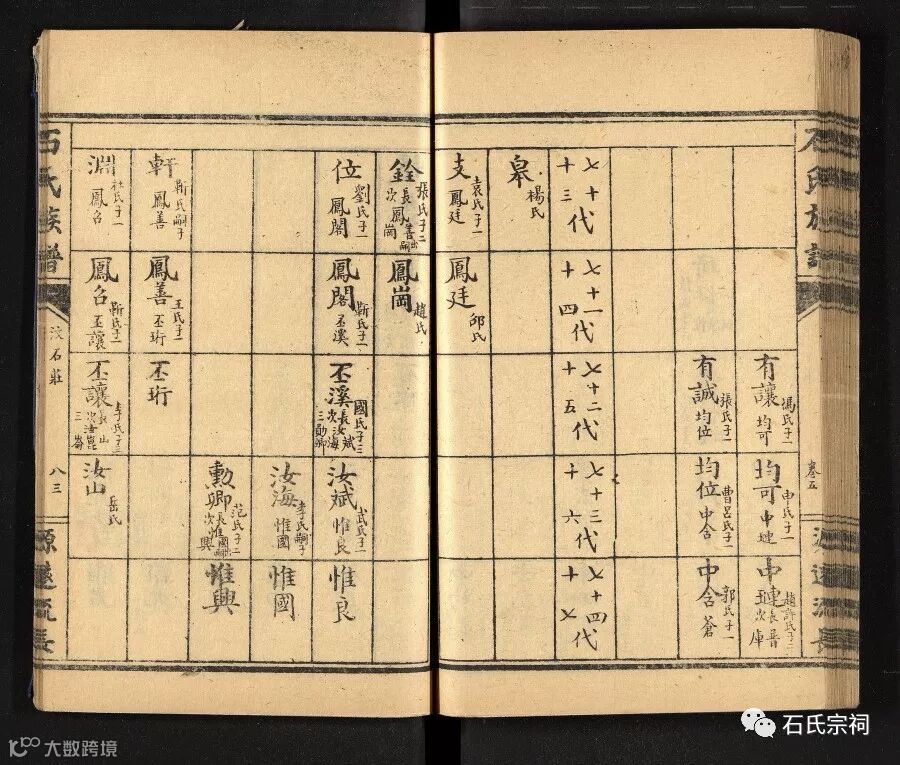 石氏族譜
卷五
源遠流長
有讓 馮氏子一 均可
均可 申氏子一 中璉
中璉 趙許氏子二 長晉 次庫
有誠 張氏子一 均位
均位 曹呂氏子一 中含
中含 郭氏子一 蒼
七十代 十三
七十一代 十四
七十二代 十五
七十三代 十六
七十四代 十七
皋 楊氏
支 袁氏子一 鳳廷
鳳廷 邱氏
銓 張氏子二 長鳳善出嗣 次鳳崗
鳳崗 趙氏
位 劉氏子一 鳳閣
鳳閣 靳氏子一 丕溪
丕溪 國氏子三 長汝斌 次汝海 三勛卿
汝斌 武氏子一 惟良
惟良
汝海 李氏嗣子 惟國
惟國
勲卿 范氏子二 長惟國出嗣 次惟興
惟興
軒 靳氏嗣子 鳳善
鳳善 王氏子一 丕珩
丕珩
淵 杜氏子一 鳳名
鳳名 靳氏子一 丕讓
丕讓 李氏子三 長汝山 次汝崑 三
汝山 岳氏
石氏族譜
汶石莊
八三
源遠流長
石氏宗祠
大数跨境